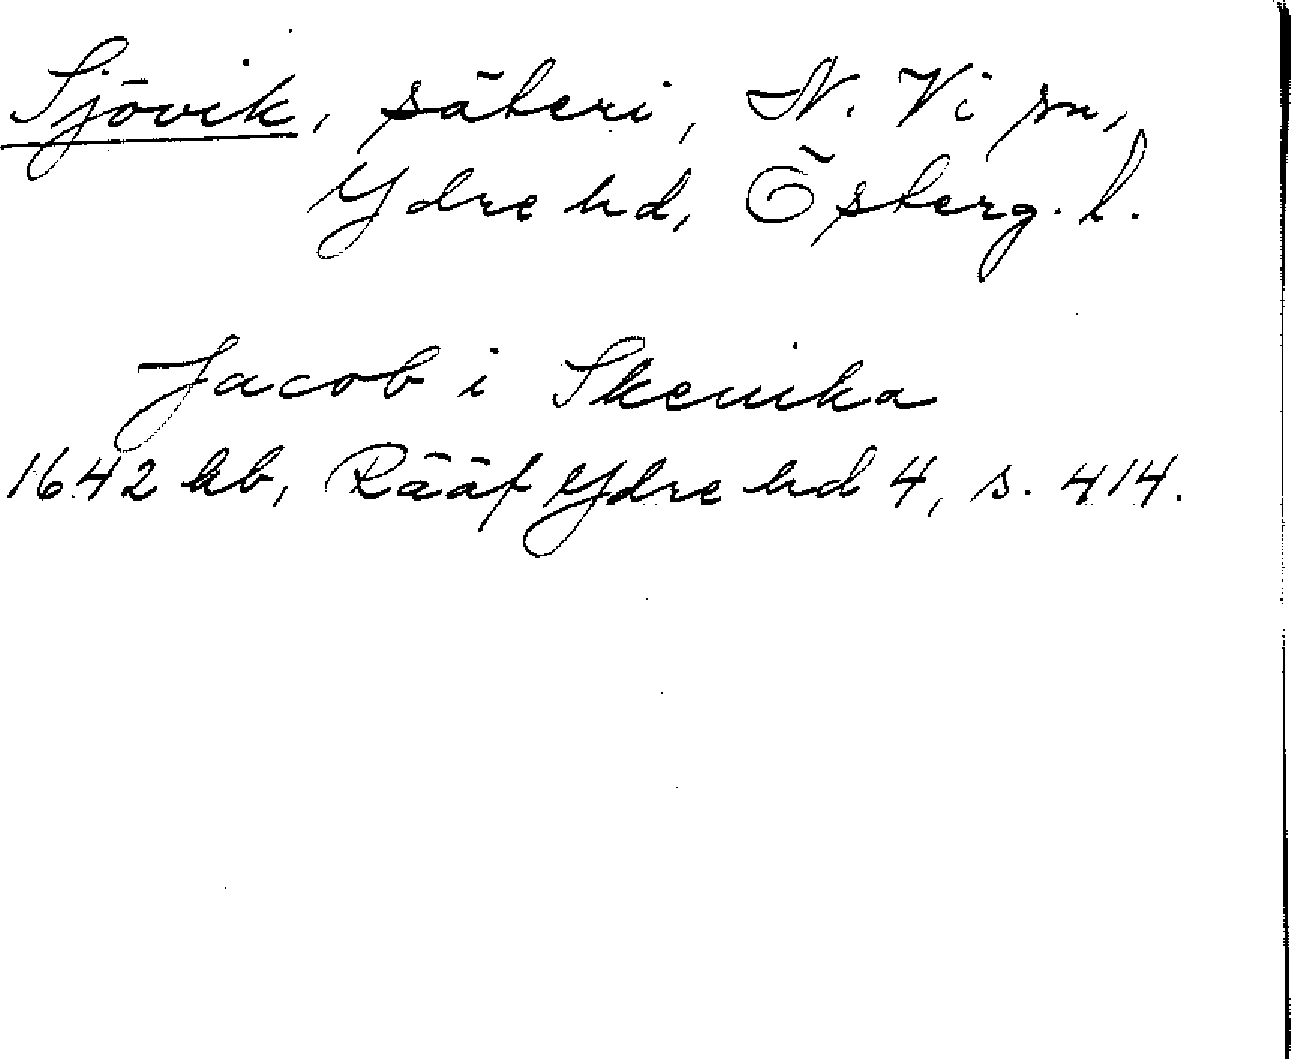 Sjövik, säteri, N. Vi sn,
Ydre hd, Österg. l.
Jacob i
1642 kb, Rääf Ydre hd 4, s. 414.